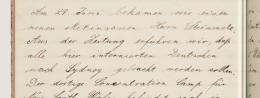 Am 28. Juni bekamen wir einen
neuen Herrn Steinmetz.
Aus der Zeitung erfuhren wir, daß
alle hier internierten Deutschen
nach Sydney gebracht werden sollen.
Der dortige Concentration Camp für